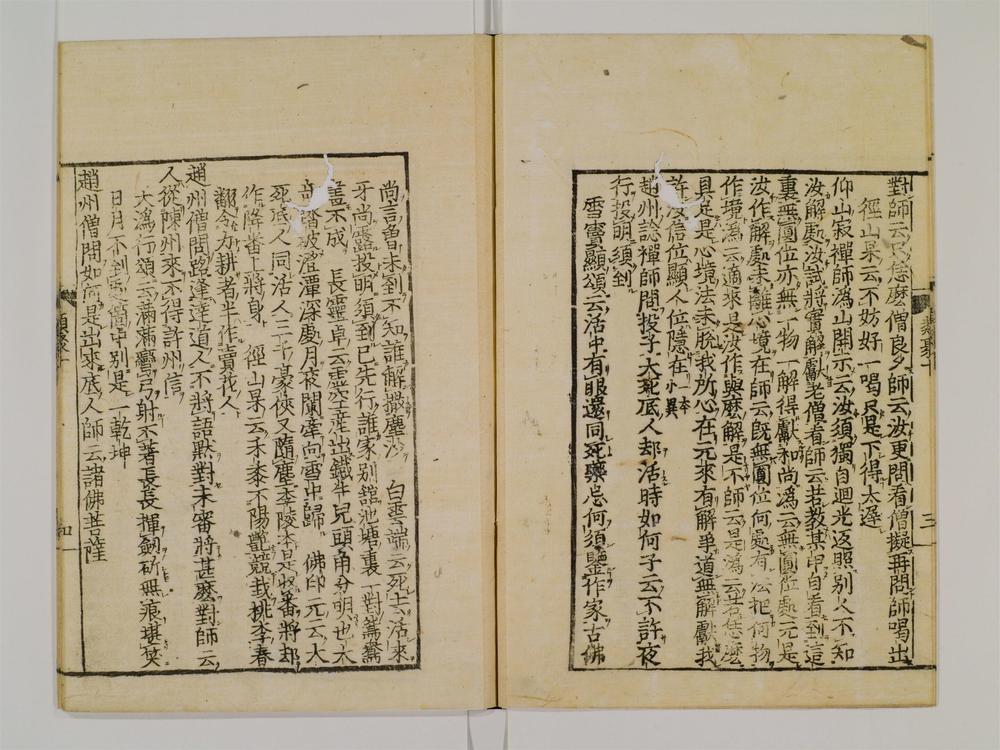 對師云只恁麼僧良久師云汝更問看僧擬再問師喝出
徑山杲云不妨好一喝只是下得太遲
仰山寂禪師溈山開示云汝須獨自迴光返照別人不知
汝解處汝試將實解獻老僧看師云若教某甲自看到這
裏無圓位亦無一物一解得獻和尚溈云無圓位處元是
汝作解處未離心境在師云既無圓位何處有法把何物
作境溈云適來是汝作與麼解是不師云是溈云若恁麼
具足是心境法未脫我所心在元來有解爭道無解獻我
許汝信位顯人位隱在一本小異
趙州諗禪師問投子大死底人却活時如何子云不許夜
行投明須到
雪竇顯頌云活中有眼還同死藥忌何須鑒作家古佛
尚言曾未到不知誰解撒塵沙 白雲端云死去活來
牙尚露投明須到已先行誰家別舘池塘裏一對鴛鴦
畫不成 長靈卓云
踏破澄潭深處月夜闌牽向雪中歸 佛印元云大
死底人同活人三千豪俠又隨塵李陵本是收番將却
作降番上將身 徑山杲云禾黍不陽艷競栽桃李春
翻令力耕者半作賣花人
趙州僧問路逢達道人不將語默對未審將甚麼對師云
人從陳州來不得許州信
大溈行頌云滿滿彎弓射不著長長揮劍斫無痕堪笑
日月不到處箇中別是一乾坤
趙州僧問如何是出來底人師云諸佛菩薩